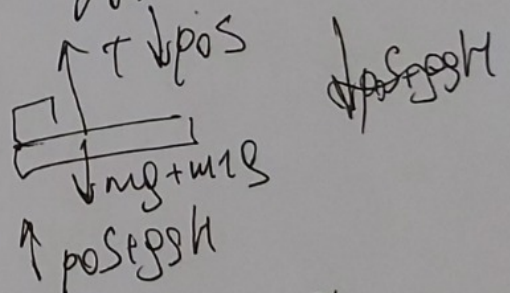 ↑ T ↓p0S
↓p0S+ρgSH
↓mg+m1g
↑ p0S+ρgSH